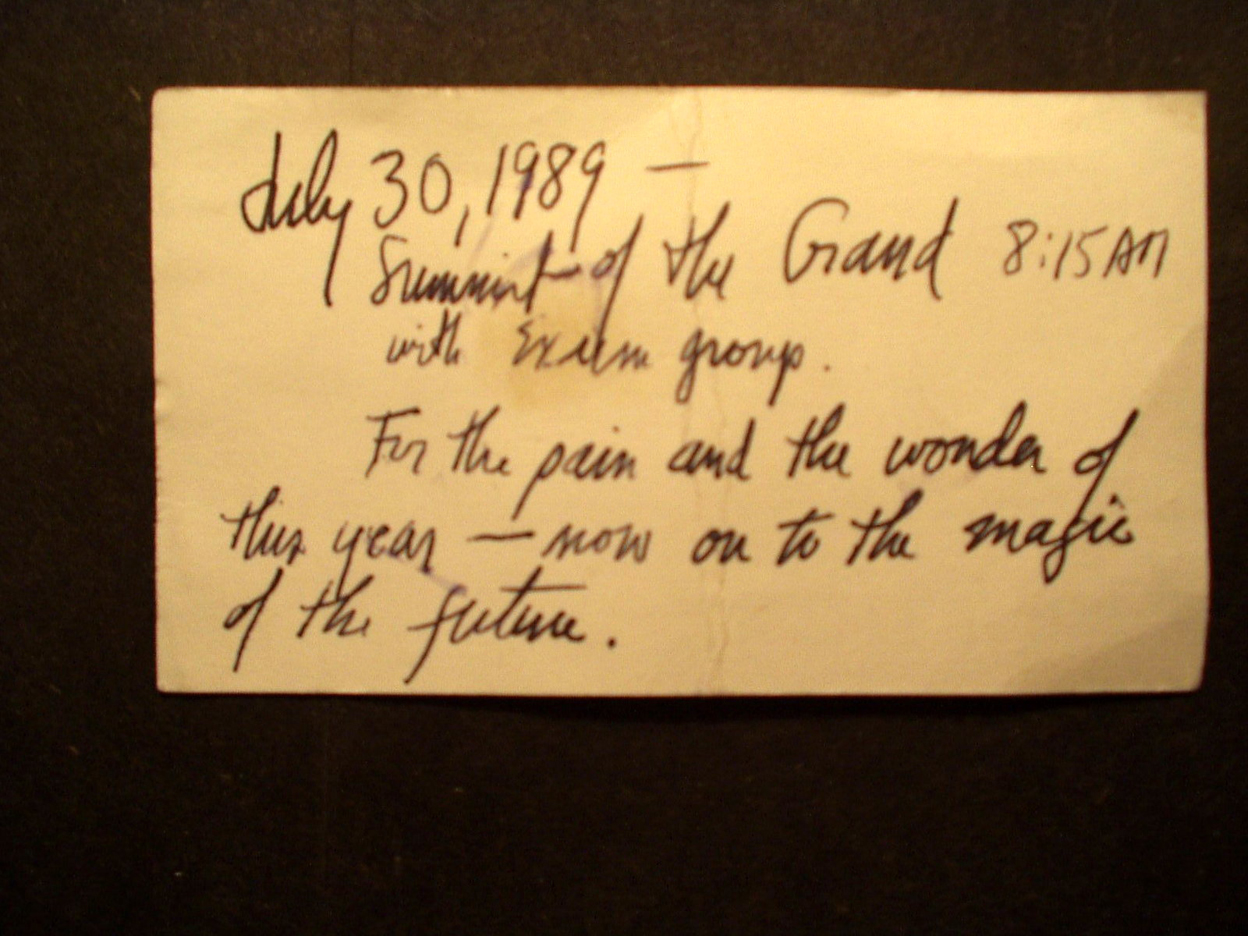 July 30, 1989 —
Summit of the Grand 8:15 AM
with Exum group.
For the pain and the wonder of
this year — now on to the magic
of the future.